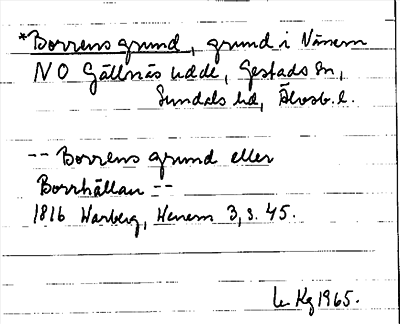 *Borrens grund, grund i Vänern
NO Gällnäs udde, Gestads sn,
Sundals hd, Älvsb. l.
-- Borrens grund eller
Borrhällan --
1816 Warberg, Wenern 3, s. 45.
Kg 1965.